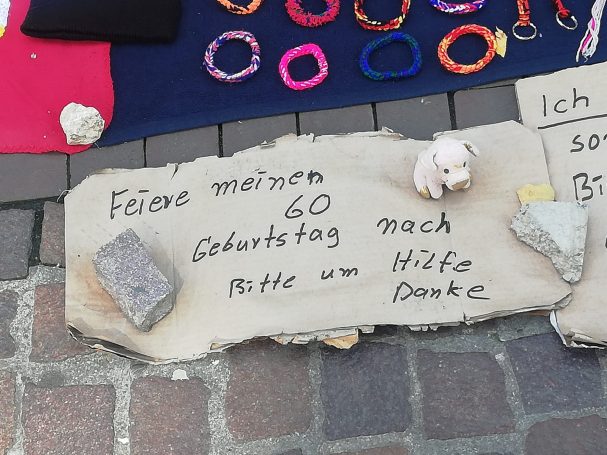 Feiere meinen
60
Geburtstag nach
Bitte um Hilfe
Danke
Ich